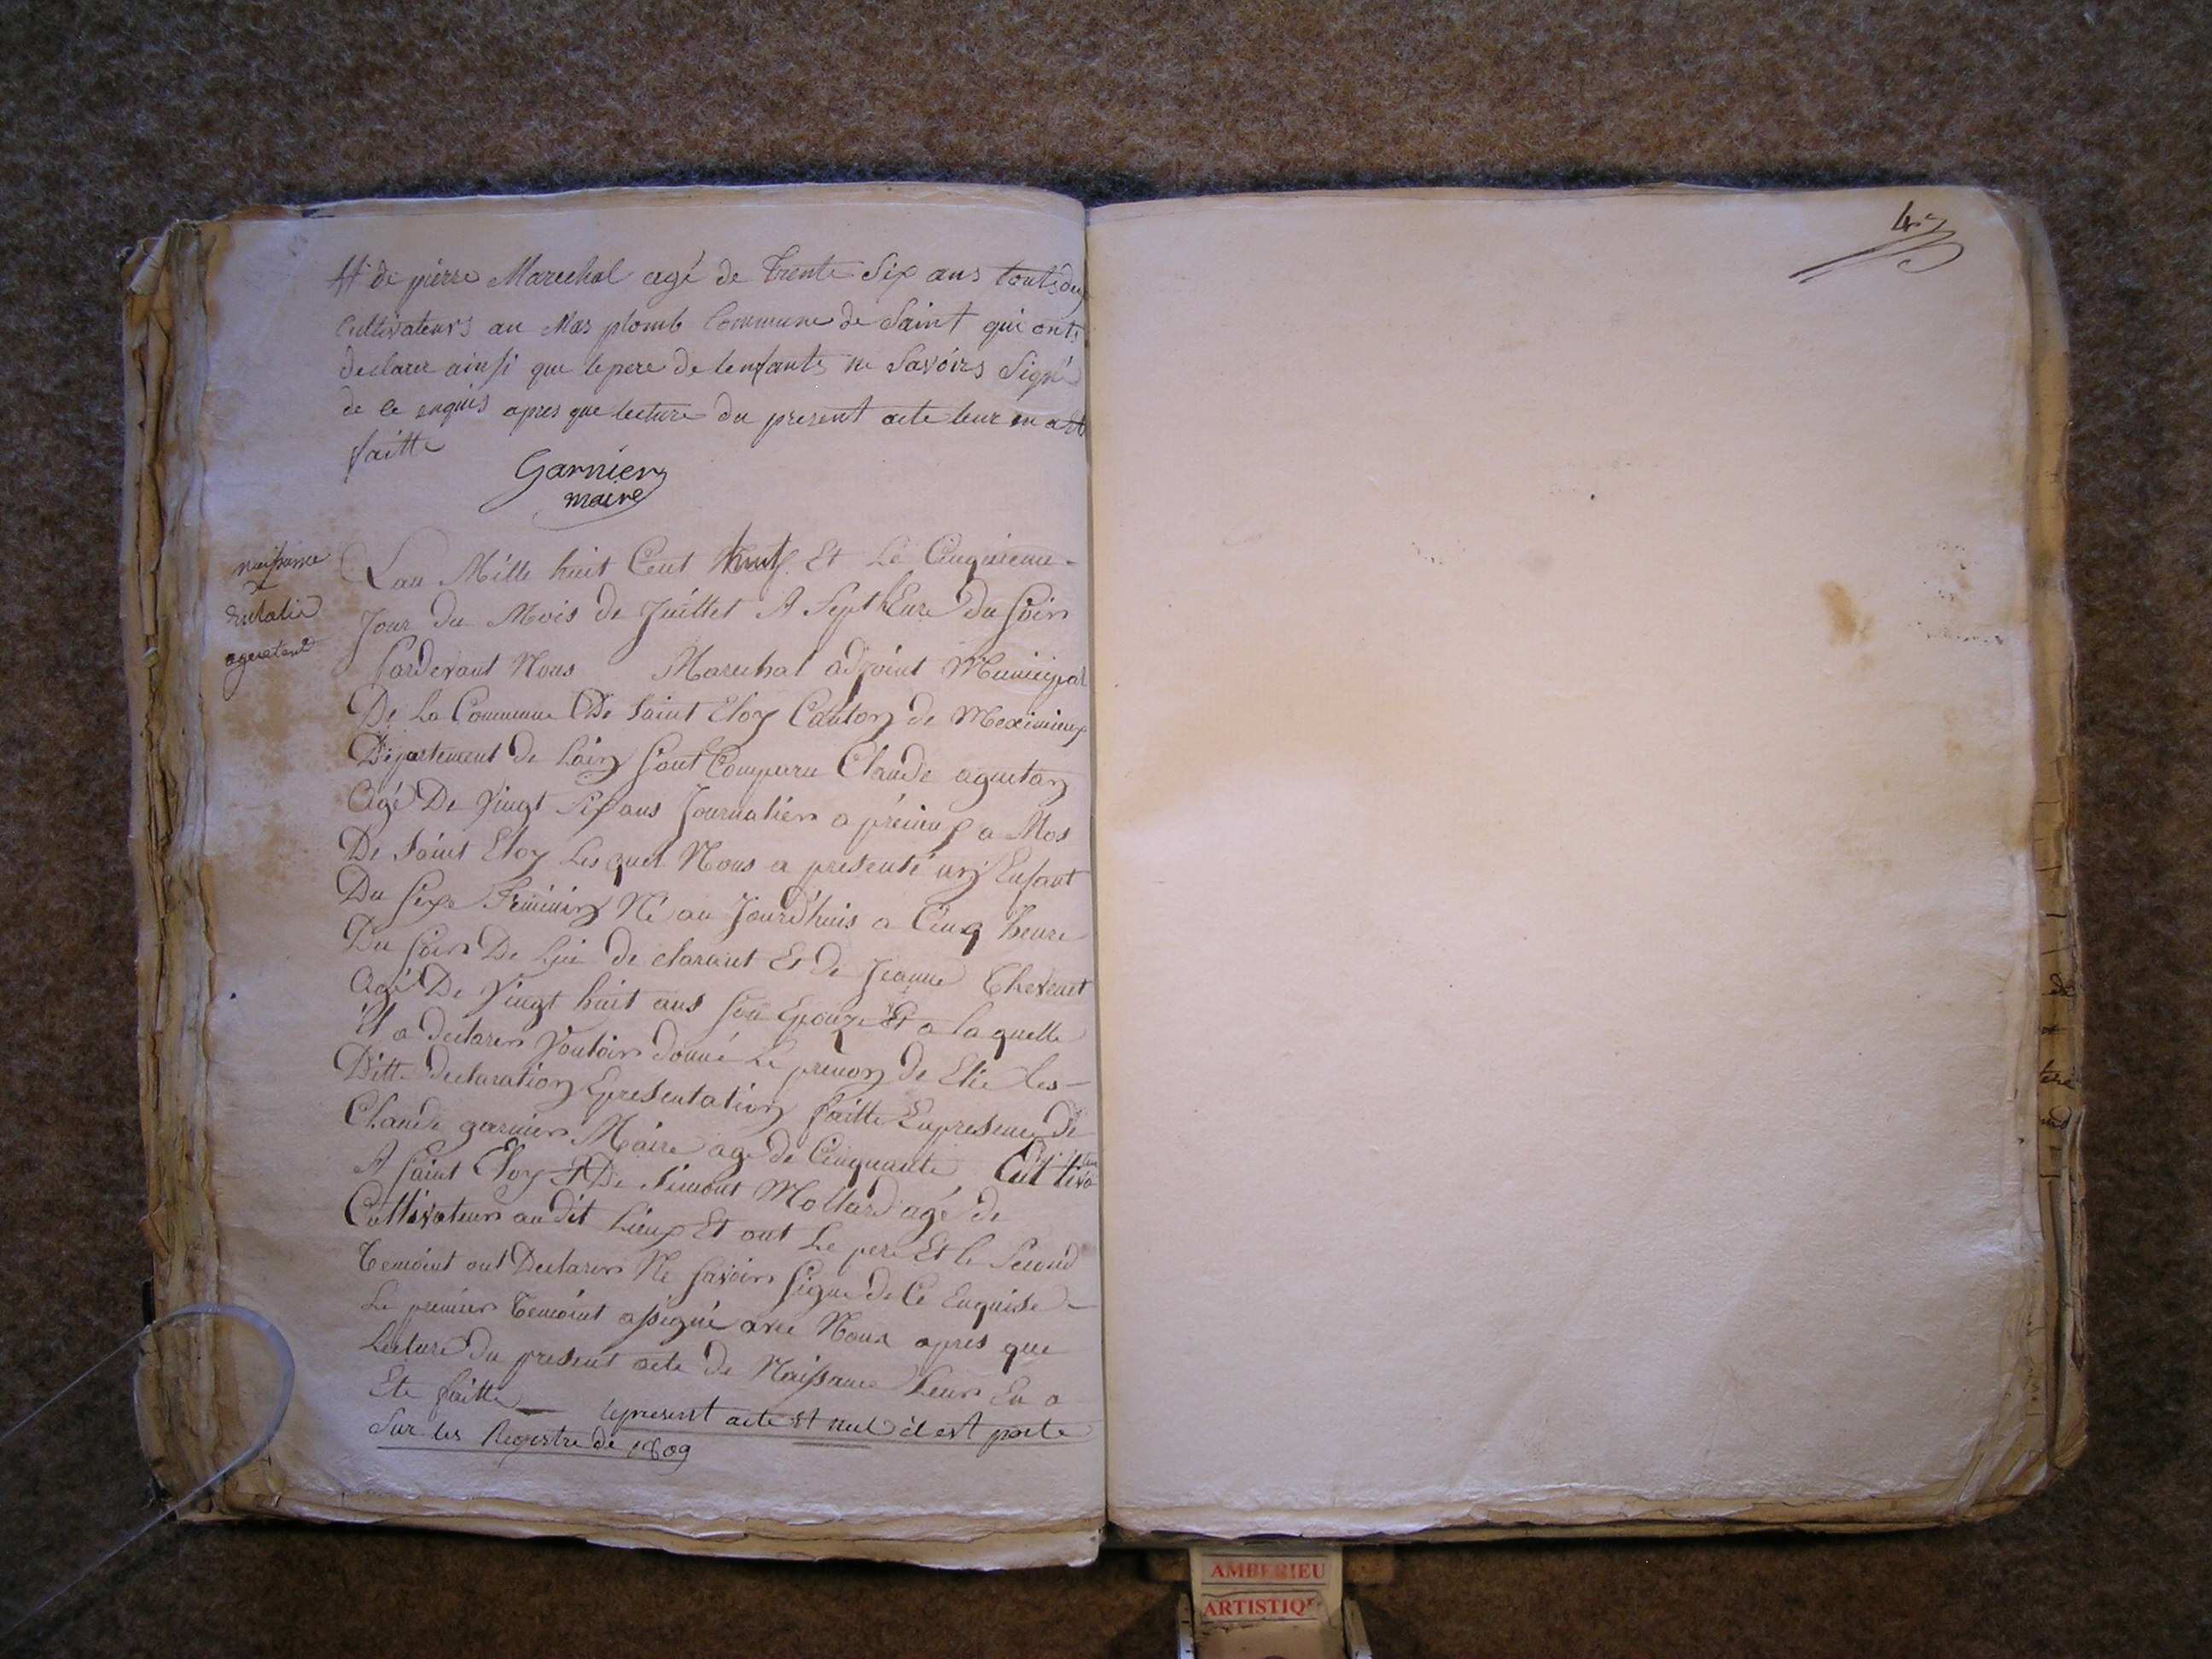 Et de pierre Marechal agé de trente Six ans touts deux
Cultivateurs au Mas plomb Commune de Saint qui onts
declarer ainsi que le pere de lenfants ne Savoirs Signé
de ce enquis apres que lecture du present acte leur en a été
faitte
Garnier
maire
naissance
aguetant
Lan Mille huit Cent Et Le Cinquieme
Jour du Mois de Juillet A Sept heure Du Soir
Pardevant Nous Marechal adjoint Municipal
De La Commune De Saint Eloy Canton de Meximieux
Département de Lain Sont Comparu Claude aguetan
Agé De Vingt Six ans Journalier a a Mas
De Saint Eloy Lesquel Nous a presenté un Enfant
Du Sexe Feminin Né au Jourd'huis a Cinq heure
Du Soir De Lui de clarant Et de Jeanne Thevenet
Agé De Vingt huit ans Son Epouze Et a la quelle
il a declarer Vouloir donné Le prenon de Elie Les
Ditte declaration Epresentation faitte Enpresence De
Claude garnier Maire age de Cinquante Cultiva
A Saint Eloy Et De Simont Mollard agé de
Cultivateur au dit Lieux Et ont Le pere Et le Second
Temoint ont Declarer Ne Savoir Signe de Ce Enquise
Le premier Temoint assigné avec Nous apres que
Lecture du present acte de Naissance Leur En a
Ete faitte le present acte est nul il est porte
Sur les Registre de 1809
4
AMBERIEU
ARTISTIQ